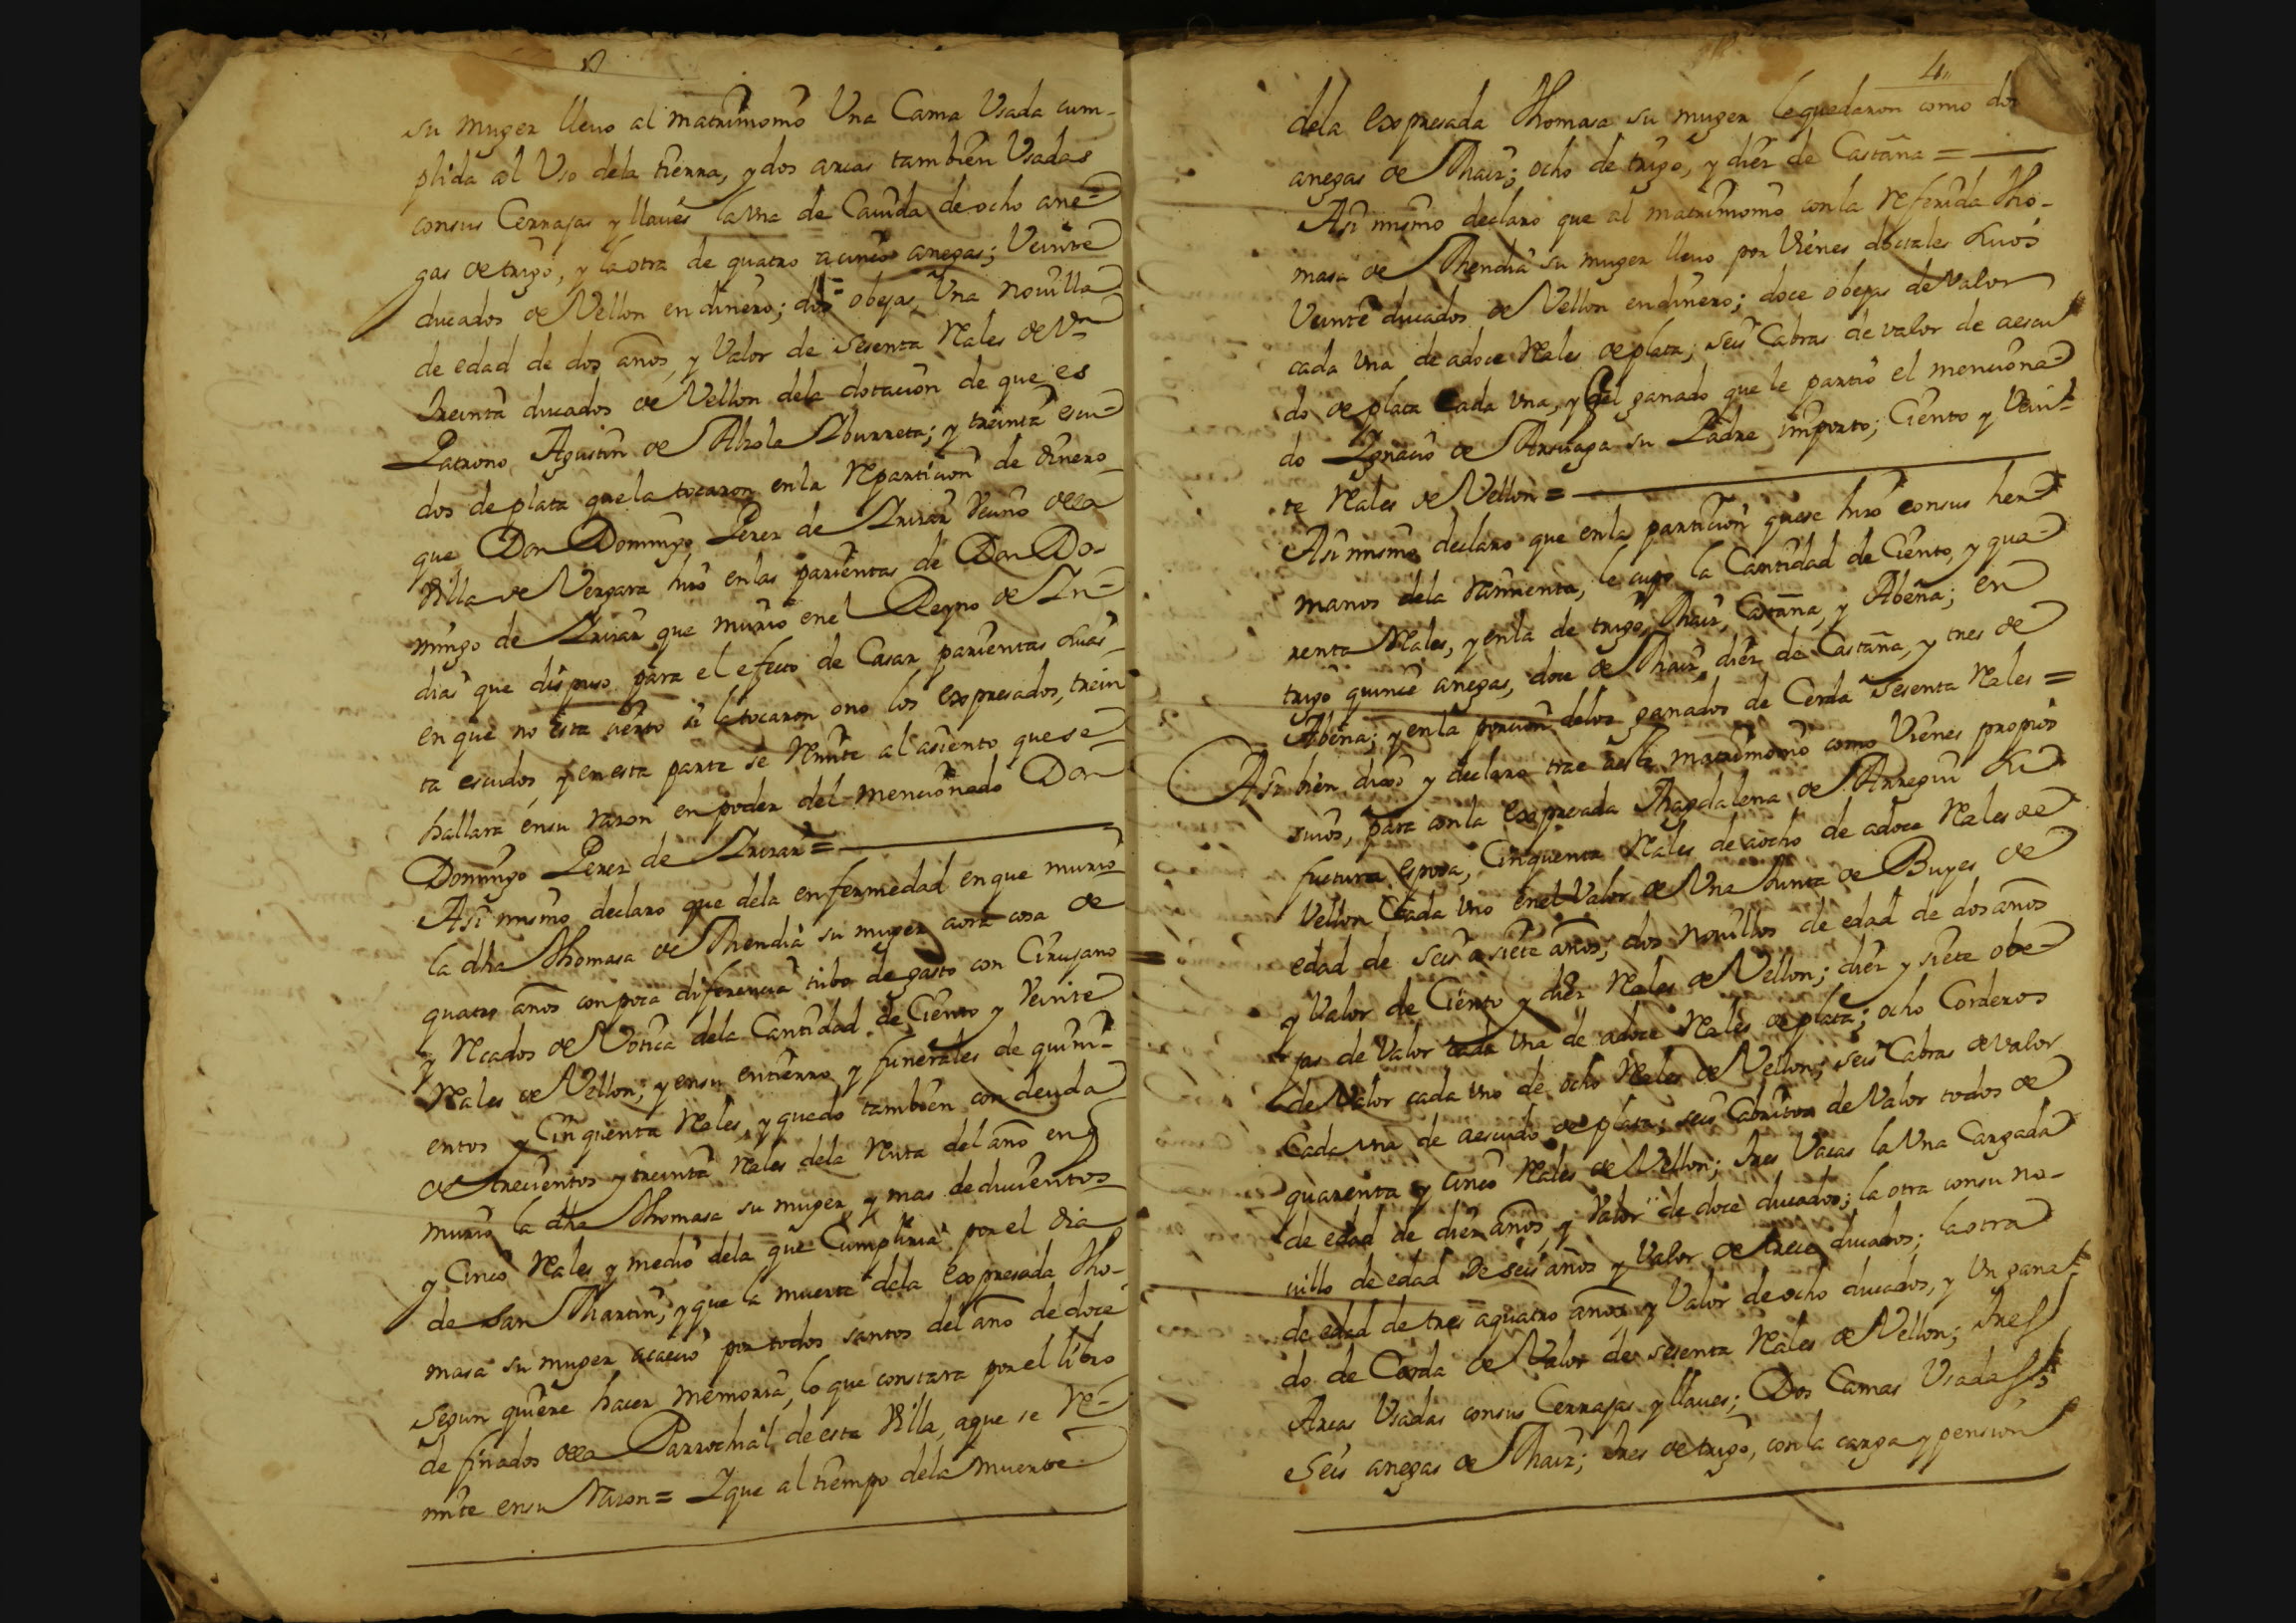 su muger lleuo al matrimonio Vna Cama Vsada cum-
plida al Vso dela tierra, y dos arcas tambien Vsadas
consus Cerrajas y llaues la vna de Cauida de ocho ane-
gas de trigo, y la otra de quatro a cinco anegas; Veinte
ducados de Vellon en dinero; dos obejas, Vna nouilla
de edad de dos años, y Valor de sesenta Reales de Vn
treinta ducados de Vellon dela dotacion de que es
Patrono Agustin de
dos de plata que la tocaron en la Reparticion de dinero
que Don Domingo Perez de Yrizar Vecino dela
Villa de Vergara hizo en las parientas de Don Do-
mingo de Yrizar que murio en el Reyno de Yn-
dias que dispuso para el efecto de Casar parientas suias
en que no esta cierto si la tocaron o no los expresados, trein
ta escudos, y en esta parte se Remite al asiento que se
hallara en su razon en poder del mencionado Don
Domingo Perez de Yrizar =
Asi mismo declaro que dela enfermedad en que murio
la dha Thomasa de Mendia su muger aora cosa de
quatro años con poca diferencia tubo de gasto con Cirujano
y Recados de Votica dela Cantidad de Ciento y Veinte
Reales de Vellon; y en su entierro y funerales de quini-
entos y Cinquenta Reales, y quedo tambien con deuda
de trecientos y treinta Reales dela Renta del año en q
murio la dha Thomasa su muger, y mas de ducientos
y Cinco Reales y medio dela que Cumpliria por el dia
de San Martin; y que la muerte dela expresada Tho-
masa su muger acaecio por todos santos del año de doce
segun quiere hacer memoria, lo que constara por el libro
de finados dela Parrochial de esta Villa, aque se Re-
mite en su Razon = Y que al tiempo dela muerte
4
dela expresada Thomasa su muger le quedaron como dos
anegas de Maiz; ocho de trigo, y diez de Castaña =
Asi mismo declaro que al matrimonio con la Referida Tho-
masa de Mendia su muger lleuo por Vienes dotales suios
Veinte ducados de Vellon en dinero; doce obejas de Valor
cada Vna de a doce Reales de plata; seis Cabras de valor de a escu
do de plata Cada vna, y del ganado que le partio el menciona-
do Ygnacio de Arsuaga su Padre importo; Ciento y Vein-
te Reales de Vellon =
Asi mismo declaro que en la particion que se hizo con sus her-
manos dela le cupo la Cantidad de Ciento, y qua-
renta Reales, y en la de trigo, Maiz, Castaña, y Abena; en
trigo quince anegas, doce de Maiz, diez de Castaña, y tres de
Abena; y en la porcion delos ganados de Cerda sesenta Reales =
Asi bien dixo y declaro trae a este matrimonio como Vienes propios
suios, para con la expresada Magdalena de Arregui su
fuctura esposa, Cinquenta Reales de a ocho de a doce Reales de
Vellon Cada vno en el Valor de Vna Junta de Bueyes de
edad de seis a siete años; dos nouillos de edad de dos años
y Valor de Ciento y diez Reales de Vellon; diez y siete obe-
jas de Valor cada Vna de a doce Reales de plata; ocho Corderos
de Valor cada vno de ocho Reales de Vellon; seis Cabras de valor
Cada vna de a escudo de plata; seis Cabritos de Valor todos de
quarenta y Cinco Reales de Vellon; tres Vacas la Vna Cargada
de edad de diez años, y Valor de doce ducados; la otra con su no-
uillo de edad de seis años y Valor de trece ducados; la otra
de edad de tres a quatro años y Valor de ocho ducados, y Vn gana-
do de Cerda de Valor de sesenta Reales de Vellon; tres
Arcas Vsadas consus Cerrajas y llaues; Dos Camas Vsadas;
Seis anegas de Maiz; tres de trigo, con la carga y pension